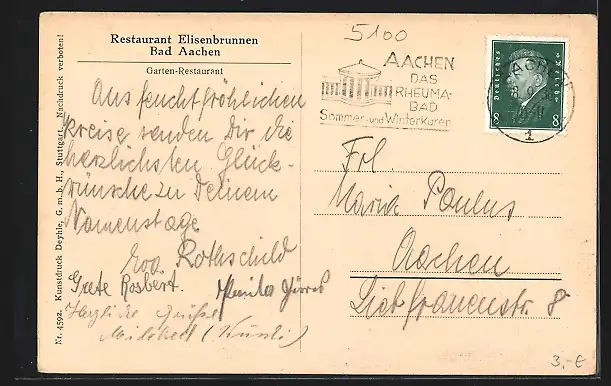 Restaurant Elisenbrunnen
Bad Aachen
Garten-Restaurant
Aus feuchtfröhlichen
Kreise senden Dir die
herzlichsten Glück-
wünsche zu Deinem
Namenstage
Eva Rothschild
Grete Rosbert.
Herzliche Grüße
Nr. 4592. Kunstdruck Deyhle, G. m. b. H., Stuttgart. Nachdruck verboten!
5100
AACHEN
DAS
RHEUMA-
BAD
Sommer- und Winterkuren
Deutsches Reich
8 8
AACHEN
1
Frl.
Maria Paulus
Aachen
Liebfrauenstr. 8
3,-€